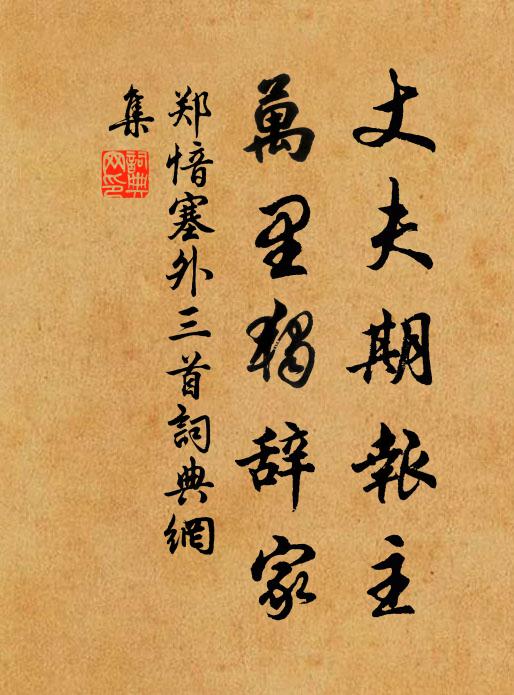 丈夫期報主
萬里獨辞家
郑愔塞外三首詞典網
集
詞典
网印